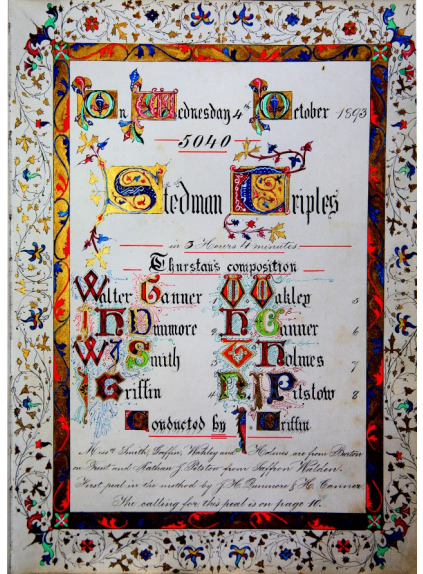 On Wednesday 4th October 1893
5040
Stedman Triples
in 3 Hours 4 minutes
Thurstan's composition
Walter Canner 1 W Wakley 5
J H Dunmore 2 H Canner 6
W J Smith T Holmes 7
J Griffin 4 N J Pitstow 8
Conducted by J Griffin
Messrs Smith, Griffin, Wakley and T Holmes are from Burton
on Trent and Nathan J. Pitstow from Saffron Walden.
First peal in the method by J. H. Dunmore & H. Canner
The calling for this peal is on page 10.